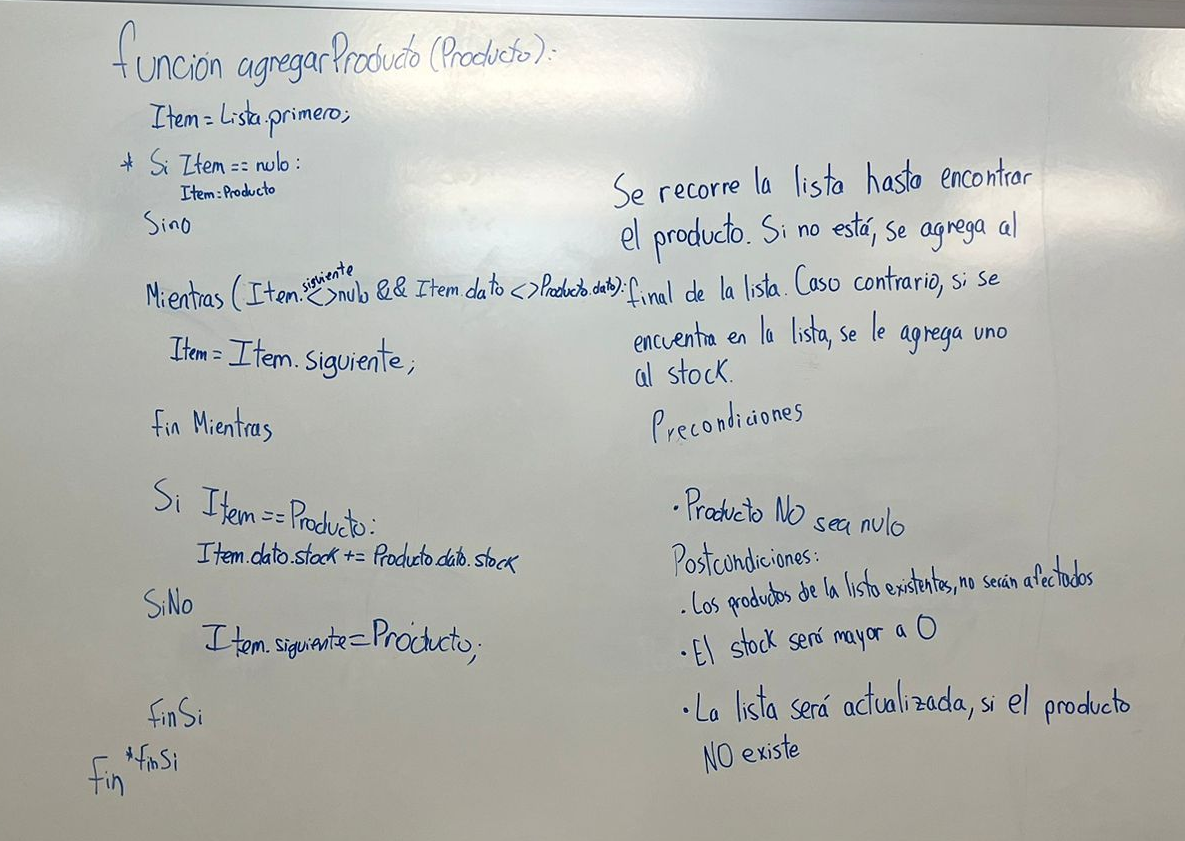 función agregarProducto (Producto):
Item = Lista.primero;
* Si Item == nulo:
Item = Producto
Sino
Mientras (Item.siguiente <> nulo && Item.dato <> Producto.dato):
Item = Item.siguiente;
fin Mientras
Si Item == Producto:
Item.dato.stock += Producto.dato.stock
SiNo
Item.siguiente = Producto;
finSi
*finSi
fin
Se recorre la lista hasta encontrar
el producto. Si no está, se agrega al
final de la lista. Caso contrario, si se
encuentra en la lista, se le agrega uno
al stock.
Precondiciones
· Producto NO sea nulo
Postcondiciones:
· Los productos de la lista existentes, no serán afectados
· El stock será mayor a 0
· La lista será actualizada, si el producto
NO existe